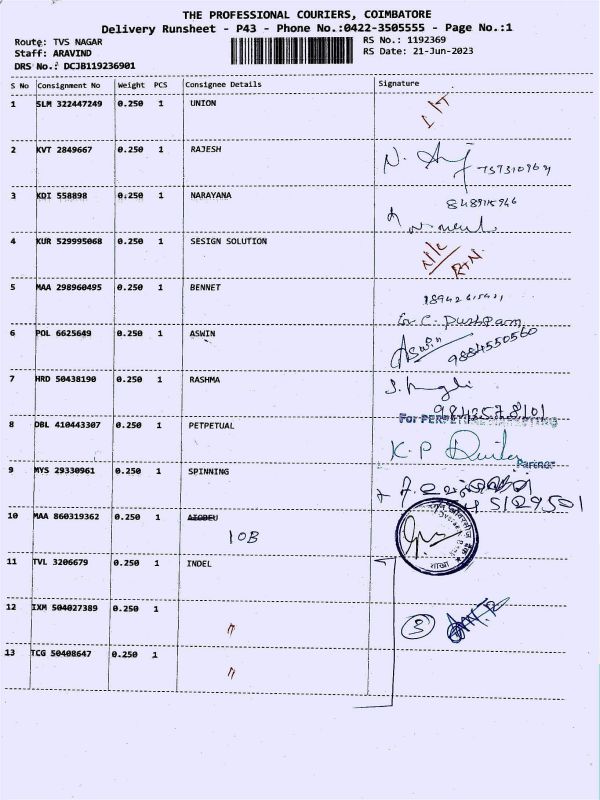 THE PROFESSIONAL COURIERS, COIMBATORE
Delivery Runsheet - P43 - Phone No.:0422-3505555 - Page No.:1
Route: TVS NAGAR
RS No.: 1192369
Staff: ARAVIND
RS Date: 21-Jun-2023
DRS No.: DCJB119236901
S No Consignment No Weight PCS Consignee Details Signature
1 SLM 322447249 0.250 1 UNION
2 KVT 2849667 0.250 1 RAJESH
N.
3 KDI 558898 0.250 1 NARAYANA
4 KUR 529995068 0.250 1 SESIGN SOLUTION
N/C
RTN
5 MAA 298960495 0.250 1 BENNET
C. Pushpam
6 POL 6625649 0.250 1 ASWIN
Aswin 9884550560
7 HRD 50438190 0.250 1 RASHMA
9842578101
For
8 DBL 410443307 0.250 1 PETPETUAL
K. P
Partner
9 MYS 29330961 0.250 1 SPINNING
5129501
10 MAA 860319362 0.250 1
IOB
11 TVL 3206679 0.250 1 INDEL
12 IXM 504027389 0.250 1 "
3
13 TCG 50408647 0.250 1 "